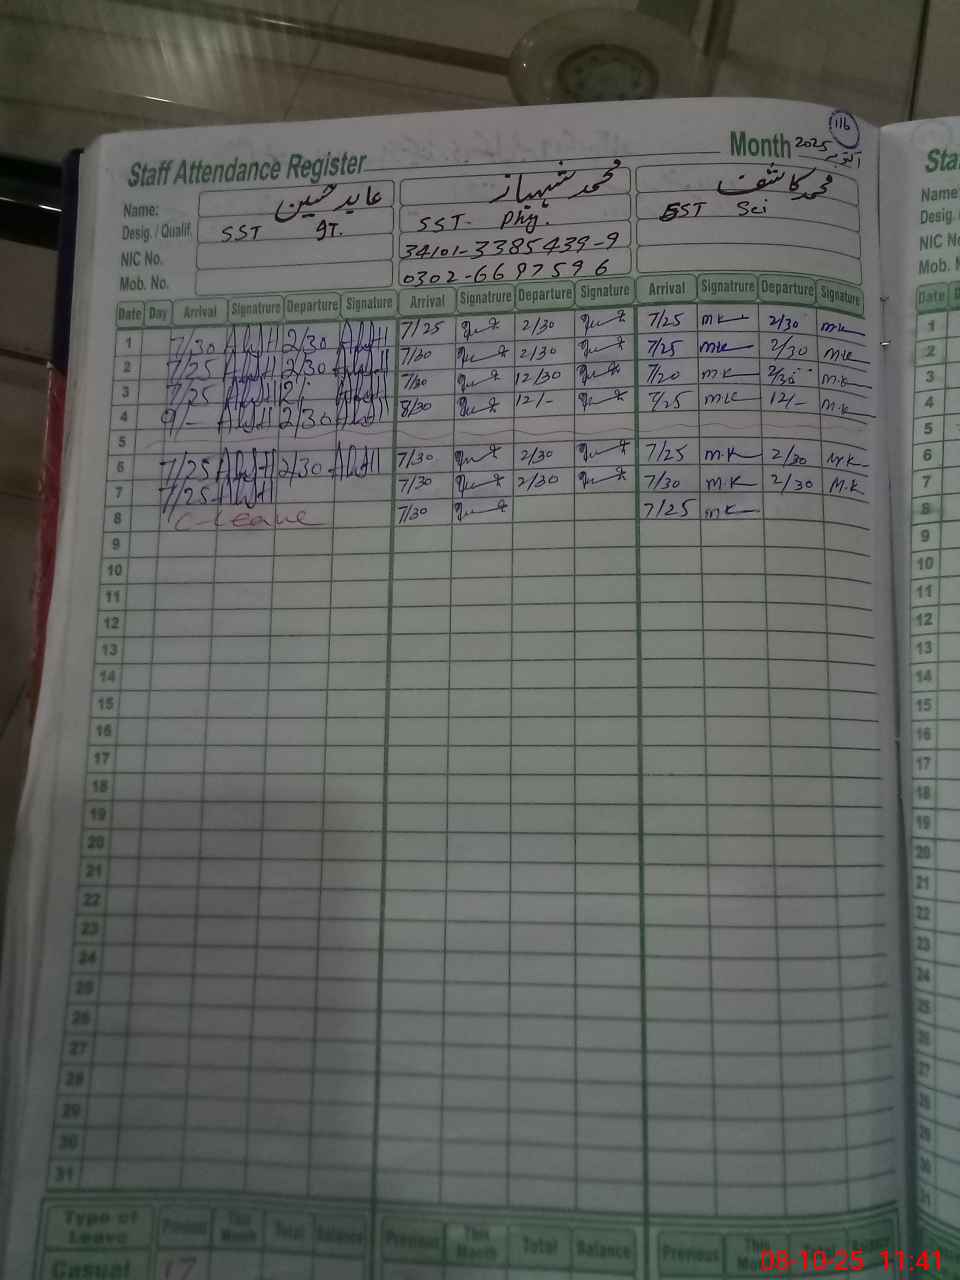 116
Staff Attendance Register
Month 2025 اکتوبر
Name: عابد حسین محمد شہباز محمد کاشف
Desig. / Qualif. SST IT. SST- Phy. SST Sci
NIC No. 34101-3385439-9
Mob. No. 0302-6697596
Date Day Arrival Signatrure Departure Signature Arrival Signatrure Departure Signature Arrival Signatrure Departure Signature
1 7/30 2/30 7/25 2/30 7/25 MK 2/30 MK
2 7/25 2/30 7/30 2/30 7/25 MK 2/30 MK
3 7/25 12/- 7/30 12/30 7/20 MK 2/30 M.K
4 9/- 2/30 8/30 12/- 7/25 MK 12/- M.K
5
6 7/25 2/30 7/30 2/30 7/25 M.K 2/30 M.K
7 7/25 7/30 2/30 7/30 M.K 2/30 M.K
8 C-leave 7/30 7/25 MK
9
10
11
12
13
14
15
16
17
18
19
20
21
22
23
24
25
26
27
28
29
30
31
Type of Leave Previous This Month Total Balance Previous This Month Total Balance Previous This Month Total Balance
Casual 17
Sta
Name
Desig.
NIC N
Mob. N
Date
1
2
3
4
5
6
7
8
9
10
11
12
13
14
15
16
17
18
19
20
21
22
23
24
25
26
27
28
29
30
31
08-10-25 11:41